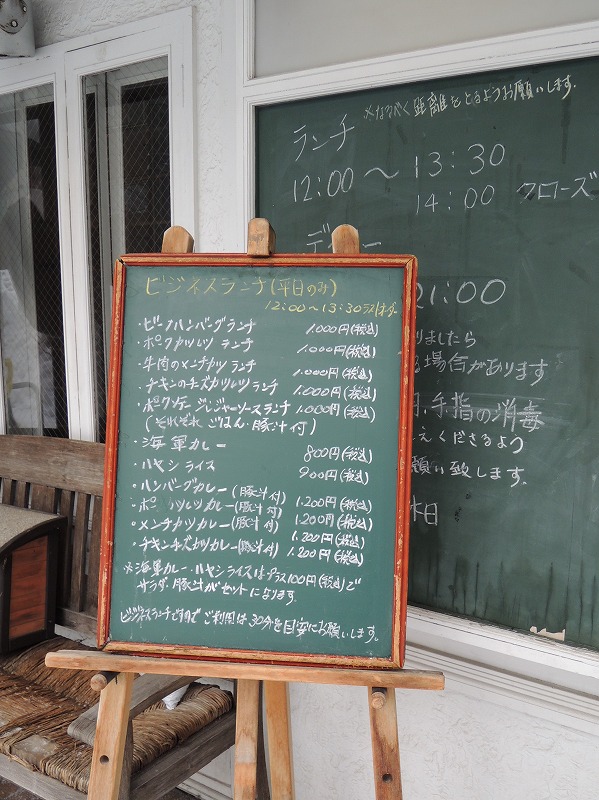 ※なるべく距離をとるようお願いします。
ランチ
12:00〜13:30
14:00 クローズ
21:00
りましたら
る場合があります
手指の消毒
えくださるよう
願い致します。
休日
ビジネスランチ(平日のみ)
12:00〜13:30ラストオーダー
・ビーフハンバーグランチ 1.000円(税込)
・ポークカツレツ ランチ 1.000円(税込)
・牛肉のメンチカツ ランチ 1.000円(税込)
・チキンのチーズカツレツランチ 1.000円(税込)
・ポークソテージンジャーソースランチ 1.000円(税込)
(それぞれ ごはん・豚汁付)
・海軍カレー 800円(税込)
・ハヤシライス 900円(税込)
・ハンバーグカレー(豚汁付) 1.200円(税込)
・ポークカツレツカレー(豚汁付) 1.200円(税込)
・メンチカツカレー(豚汁付) 1.200円(税込)
・チキンチーズカツカレー(豚汁付) 1.200円(税込)
※海軍カレー・ハヤシライスはプラス100円(税込)で
サラダ・豚汁がセットになります。
ビジネスランチですので ご利用は30分を目安にお願いします。